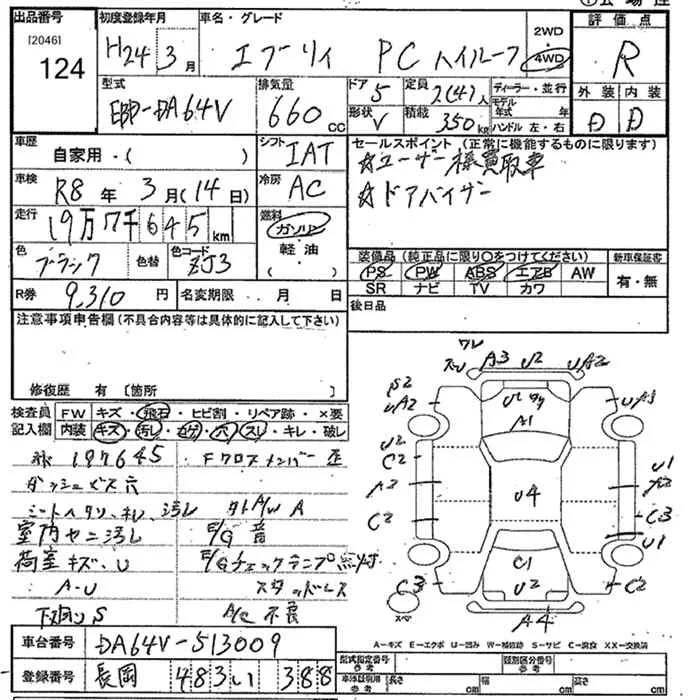 出品番号
[2046]
124
初度登録年月
H24年 3月
車名・グレード
エブリイ PC ハイルーフ
2WD
4WD
評価点
R
型式
EBD-DA64V
排気量
660 cc
ドア
5
形状
V
定員
2(4)人
積載
350 kg
ディーラー・並行
モデル年式 年
ハンドル 左・右
外装
内装
D
D
車歴
自家用・( )
シフト
IAT
車検
R8年 3月(14日)
冷房
AC
走行
19万7千645km
燃料
ガソリン
軽油
( )
色
ブラック
色替
色コード
ZJ3
R券
9,310円
名変期限 月 日
セールスポイント (正常に機能するものに限ります)
☆ユーザー様買取車
☆ドアバイザー
装備品(純正品に限り〇をつけてください)
PS PW ABS エアB AW
SR ナビ TV カワ
新車保証書
有・無
後日品
注意事項申告欄(不具合内容等は具体的に記入して下さい)
修復歴 有 〔箇所 〕
検査員記入欄
FW キズ・飛石・ヒビ割・リペア跡・×要
内装 キズ・汚レ・コゲ・穴・スレ・キレ・破レ
197645
Fクロスメンバー歪
ダッシュビス穴
シートヘタリ、キレ、汚レ
タイヤA
室内ヤニ汚レ
E/G音
荷室キズ、U
E/Gチェックランプ点灯
A-U
スタッドレス
下廻りS
A/C不良
ワレ
A3 U2 UA2
S2
UA2
UA1
A1
U2
C2
A2
C2
U4
U1
A2
C3
U1
C1
U2
C3
C2
A4
スペア
A-キズ E-エクボ U-凹み W-補修跡 S-サビ C-腐食 XX-交換済
車台番号
DA64V-513009
登録番号
長岡 483 い 388
型式指定番号
参考
類別区分番号
参考
車体証明用
参考
長さ cm
幅 cm
高さ cm